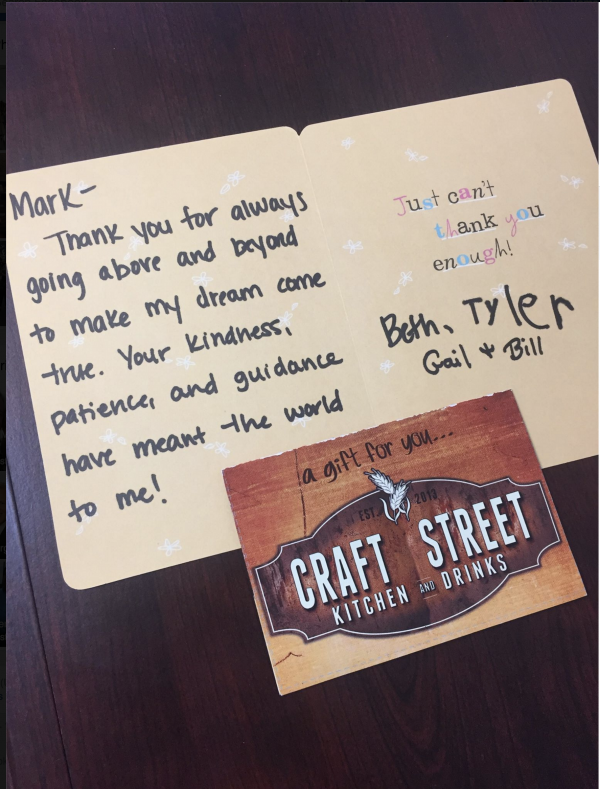 Mark-
Thank you for always
going above and beyond
to make my dream come
true. Your kindness,
patience, and guidance
have meant the world
to me!
Just can't
thank you
enough!
Beth, Tyler
Gail + Bill
a gift for you...
EST. 2013
CRAFT STREET
KITCHEN AND DRINKS